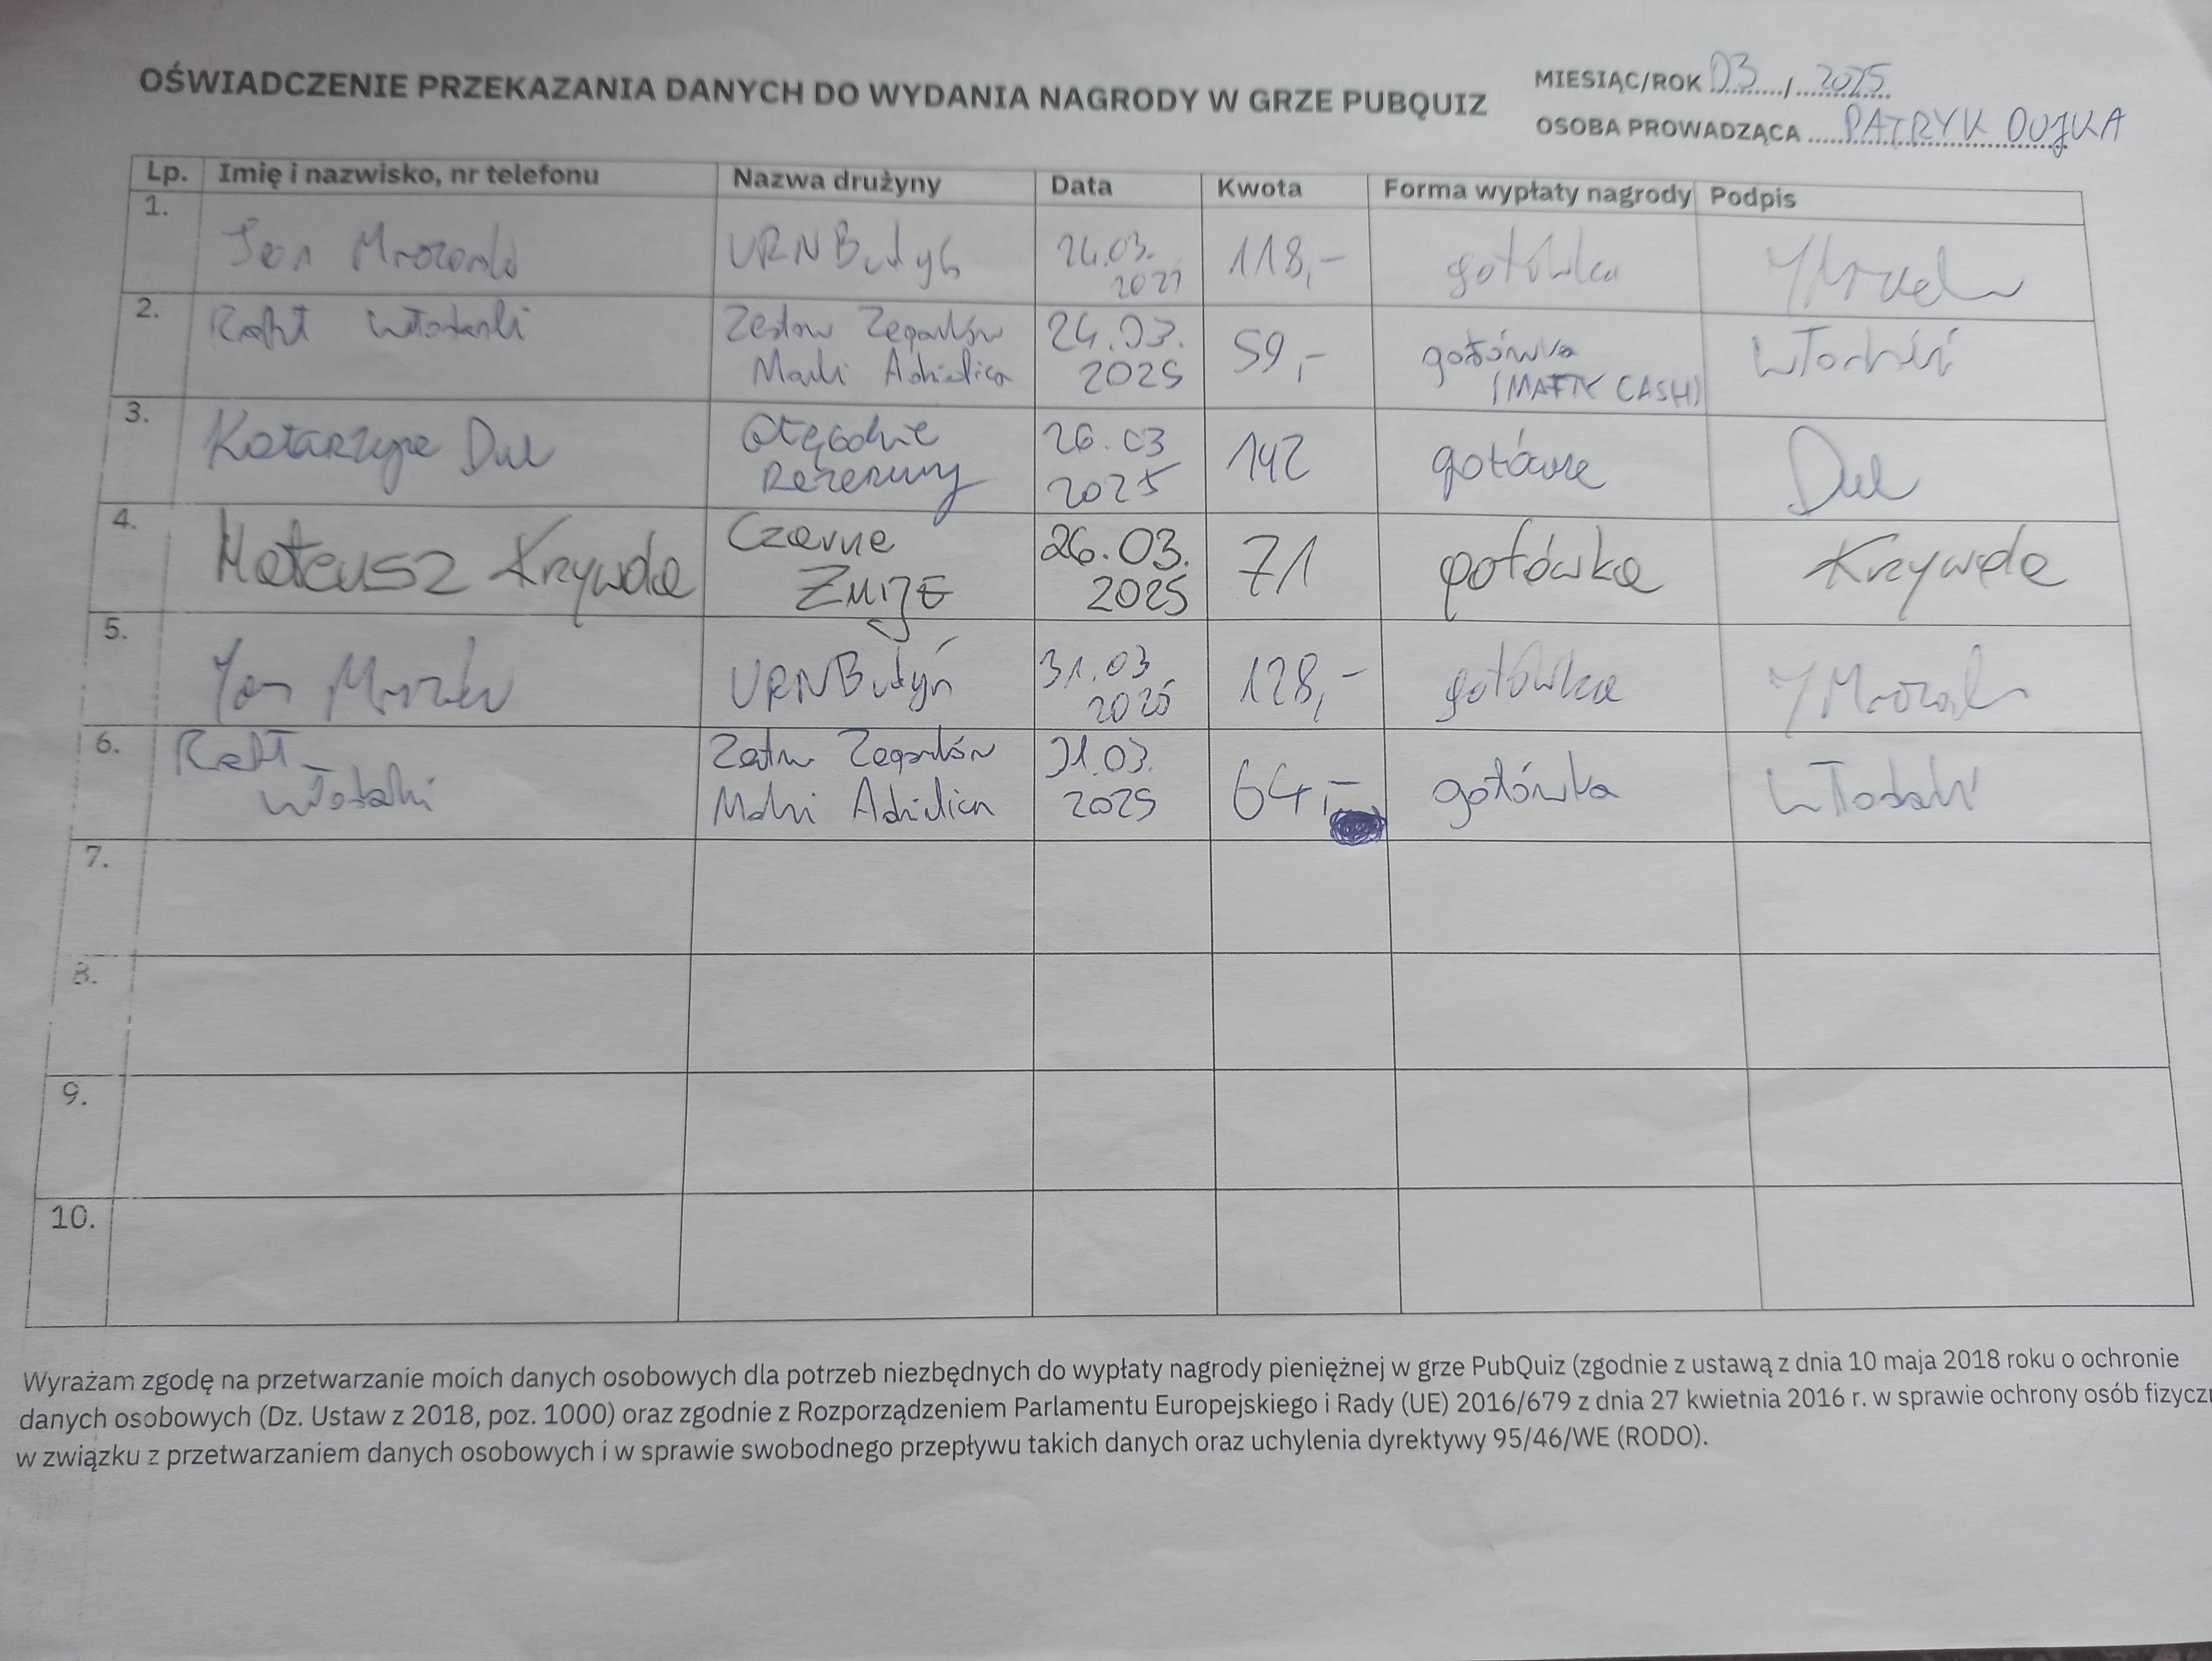 OŚWIADCZENIE PRZEKAZANIA DANYCH DO WYDANIA NAGRODY W GRZE PUBQUIZ
MIESIĄC/ROK 03 / 2025
OSOBA PROWADZĄCA PATRYK DUJKA
Lp. Imię i nazwisko, nr telefonu Nazwa drużyny Data Kwota Forma wypłaty nagrody Podpis
1. Jan URNButyń 24.03. 118,- gotówka
2. Rafał 24.03. 59,- gotówka
2025 CASH)
3. Katarzyna Dul 26.03 142 gotówka Dul
Rezerwy 2025
4. Mateusz Krywda Czarne 26.03. 71 gotówka Krywda
Żmije 2025
5. Jan URNButyń 31.03 128,- gotówka
2025
6. Rafał Zegarków 31.03. 64,- gotówka
2025
7.
8.
9.
10.
Wyrażam zgodę na przetwarzanie moich danych osobowych dla potrzeb niezbędnych do wypłaty nagrody pieniężnej w grze PubQuiz (zgodnie z ustawą z dnia 10 maja 2018 roku o ochronie
danych osobowych (Dz. Ustaw z 2018, poz. 1000) oraz zgodnie z Rozporządzeniem Parlamentu Europejskiego i Rady (UE) 2016/679 z dnia 27 kwietnia 2016 r. w sprawie ochrony osób
w związku z przetwarzaniem danych osobowych i w sprawie swobodnego przepływu takich danych oraz uchylenia dyrektywy 95/46/WE (RODO).